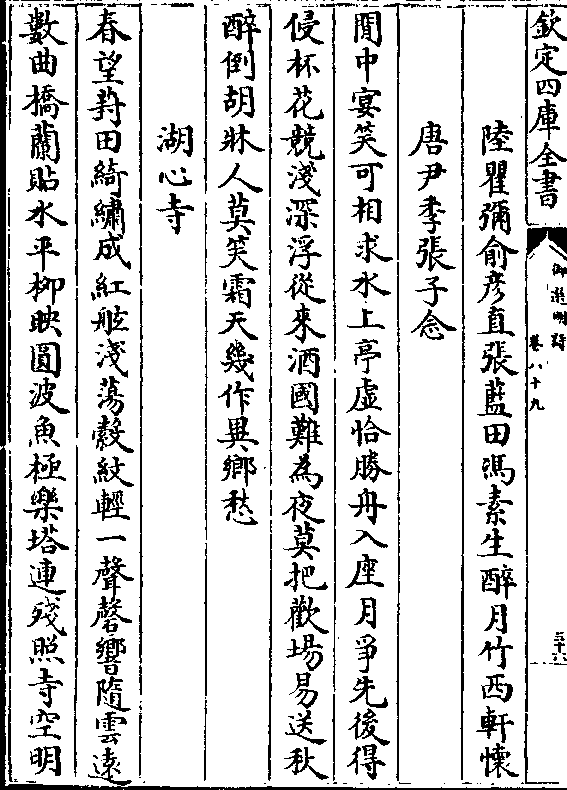 欽定四庫全書
御選明詩
卷八十九
三十六
陸瞿彌俞彦直張藍田馮素生醉月竹西軒懷
唐尹季張子念
閒中宴笑可相求水上亭虛恰勝舟入座月爭先後得
侵杯花競淺深浮從來酒國難為夜莫把歡場易送秋
醉倒胡牀人莫笑霜天幾作異鄉愁
湖心寺
春望葑田綺繡成紅舷淺蕩縠紋輕一聲磬響隨雲遠
數曲橋蘭貼水平柳映圓波魚極樂塔連殘照寺空明